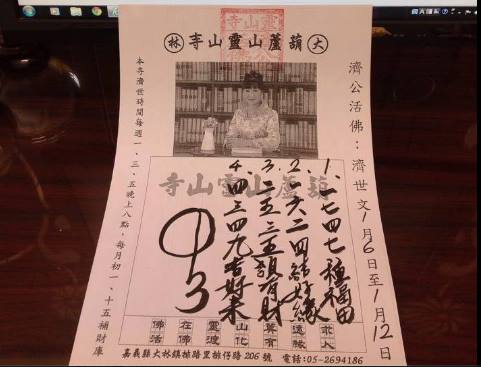 大林葫蘆山靈山寺
濟公活佛:濟世文1月6日至1月12日
本寺濟世時間每週一、三、五晚上八點,每月初一、十五補財庫
葫蘆山靈山寺
1、一七四七種福田
2、一六二四結好緣
3、二五三五領有財
4、四三四九吉好未
3
靈山渡化
佛在
佛活
嘉義縣大林鎮排路里排仔路206號 電話:05-2694186